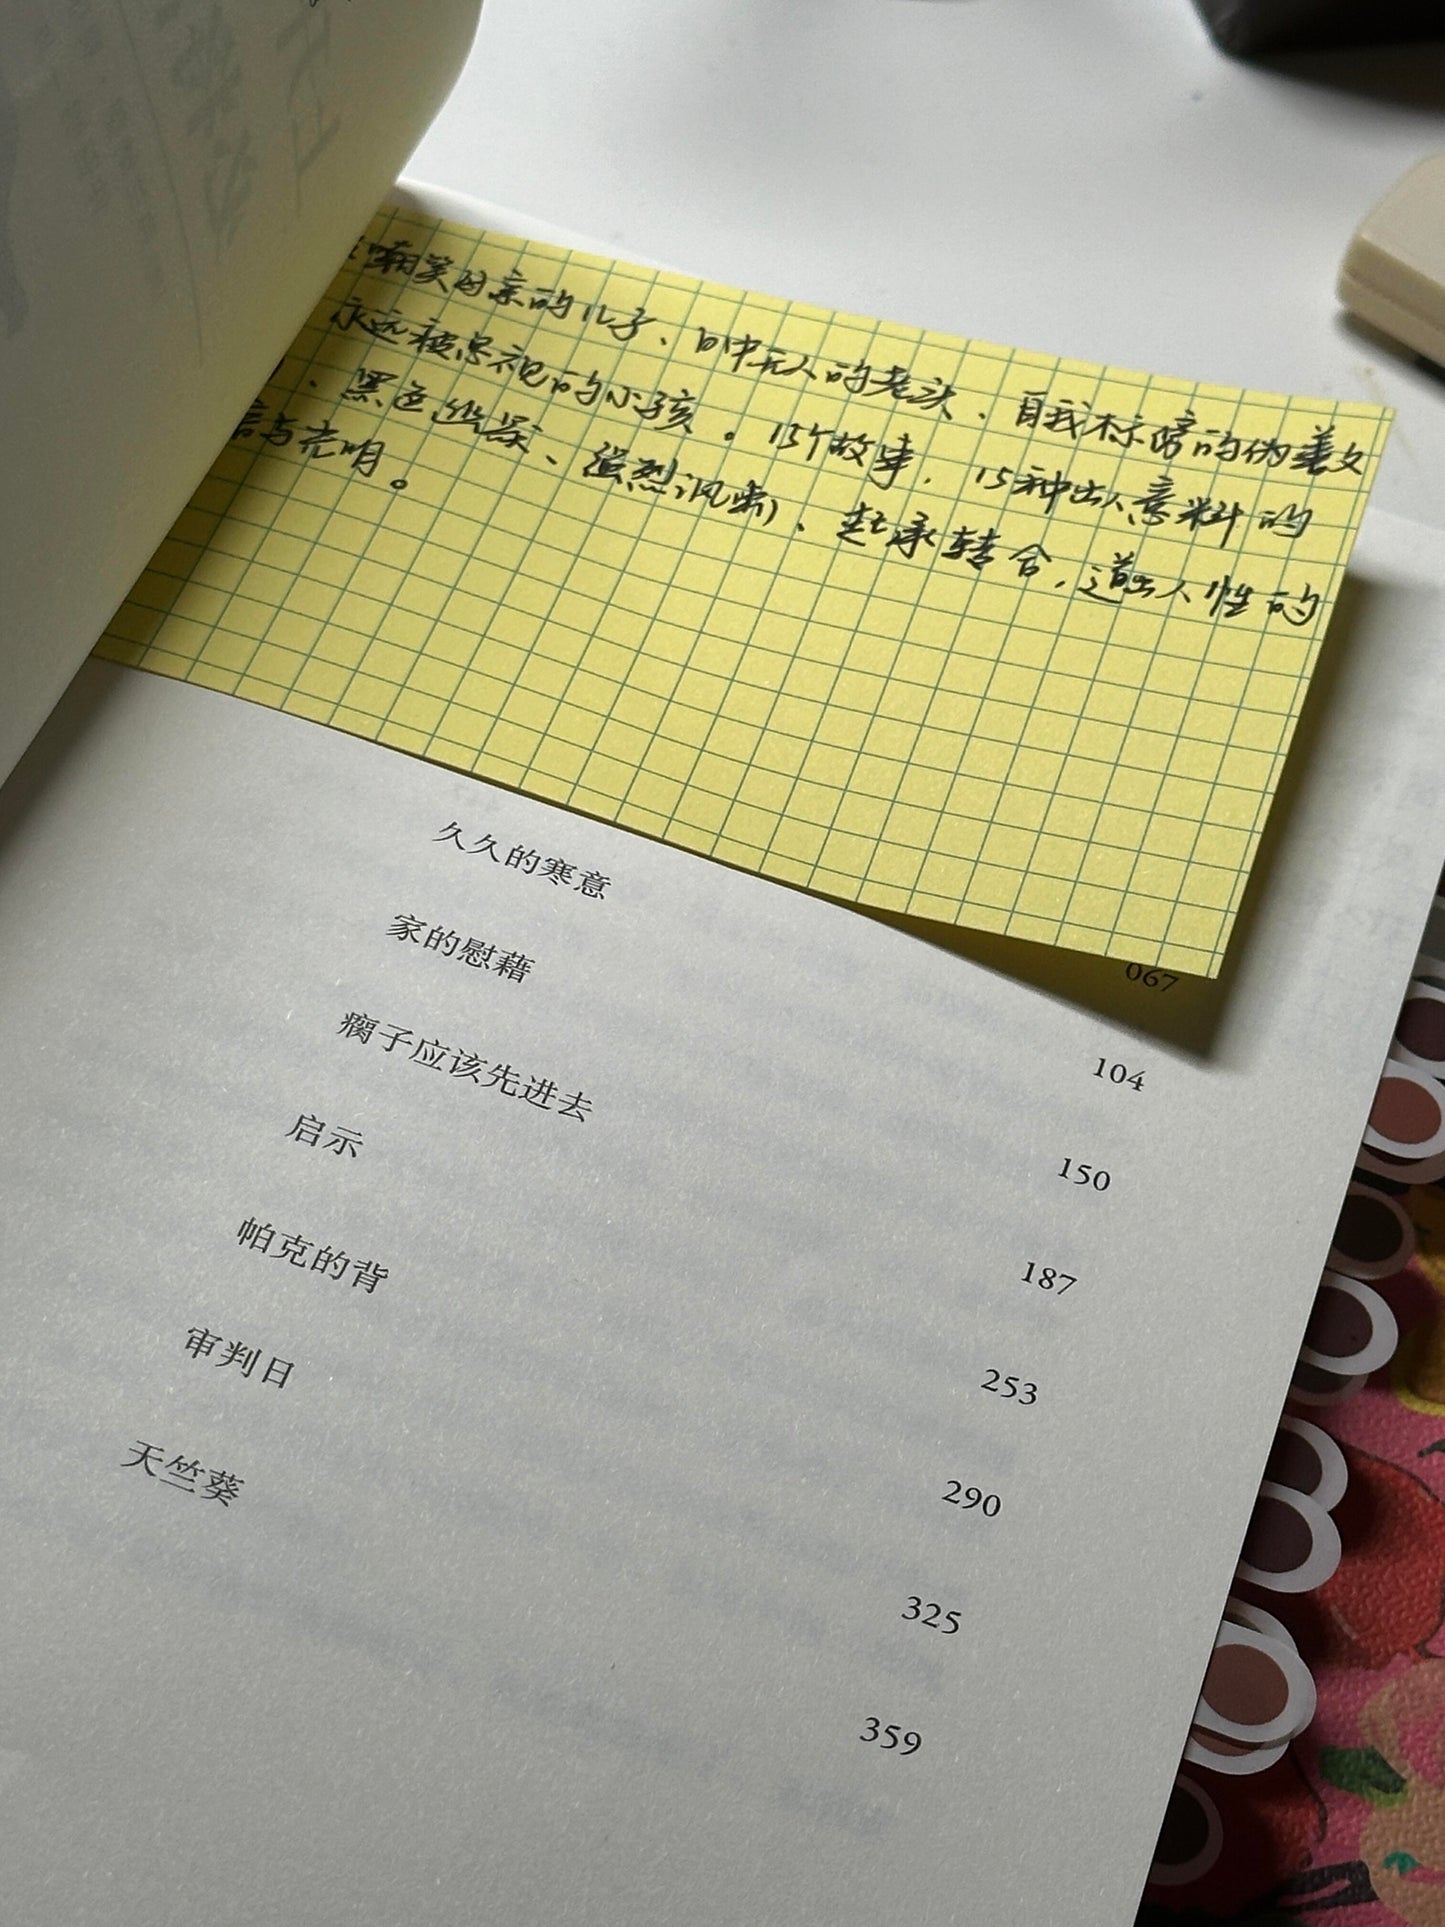 嘲笑母亲的儿子、目中无人的老头、自我标榜的伪善文
永远被忽视的小孩。15个故事，15种出人意料的
、黑色幽默、强烈讽刺、起承转合，道出人性的
与光明。
067
久久的寒意 104
家的慰藉 150
瘸子应该先进去 187
启示 253
帕克的背 290
审判日 325
天竺葵 359